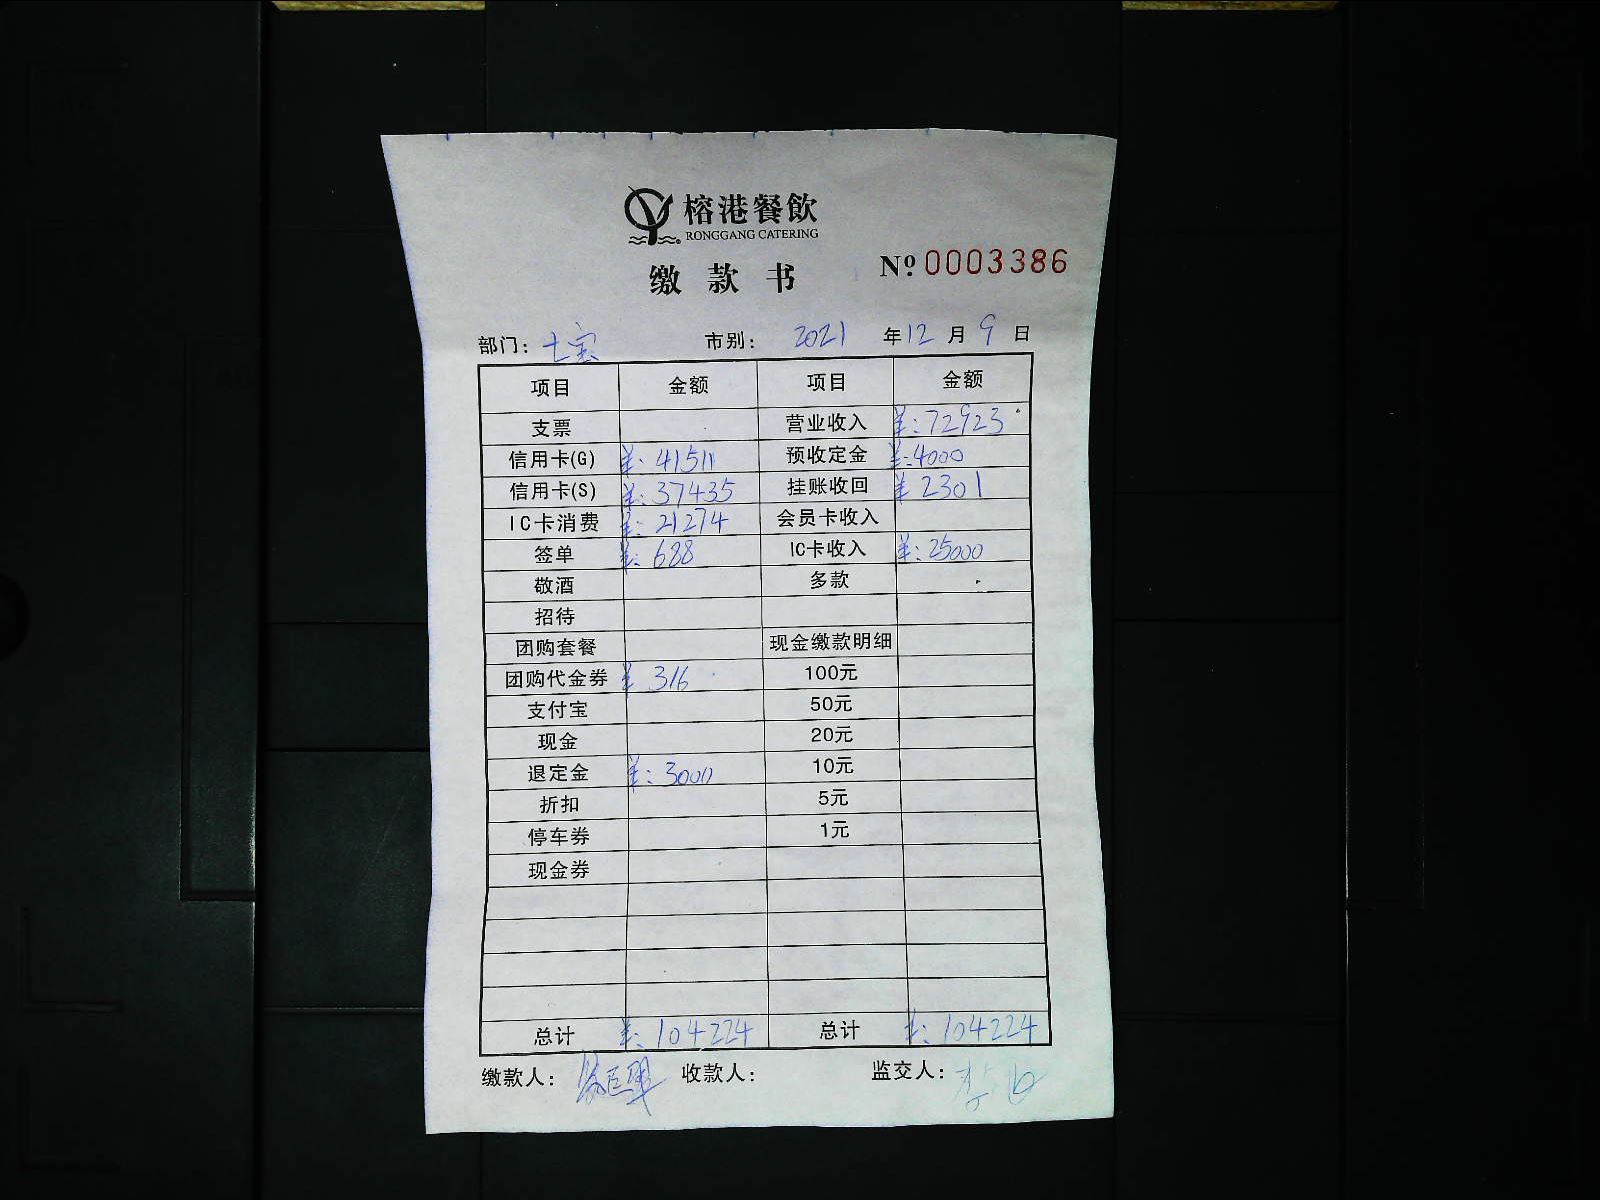 榕港餐飲
RONGGANG CATERING
缴款书
Nº.0003386
部门：七宝 市别： 2021 年 12 月 9 日
项目 金额 项目 金额
支票 营业收入 ¥:72923
信用卡(G) ¥:41511 预收定金 ¥:4000
信用卡(S) ¥:37435 挂账收回 ¥2301
IC卡消费 ¥:21274 会员卡收入
签单 ¥:688 IC卡收入 ¥:25000
敬酒 多款
招待
团购套餐 现金缴款明细
团购代金券 ¥316 100元
支付宝 50元
现金 20元
退定金 ¥:3000 10元
折扣 5元
停车券 1元
现金券
总计 ¥:104224 总计 ¥:104224
缴款人： 收款人： 监交人：